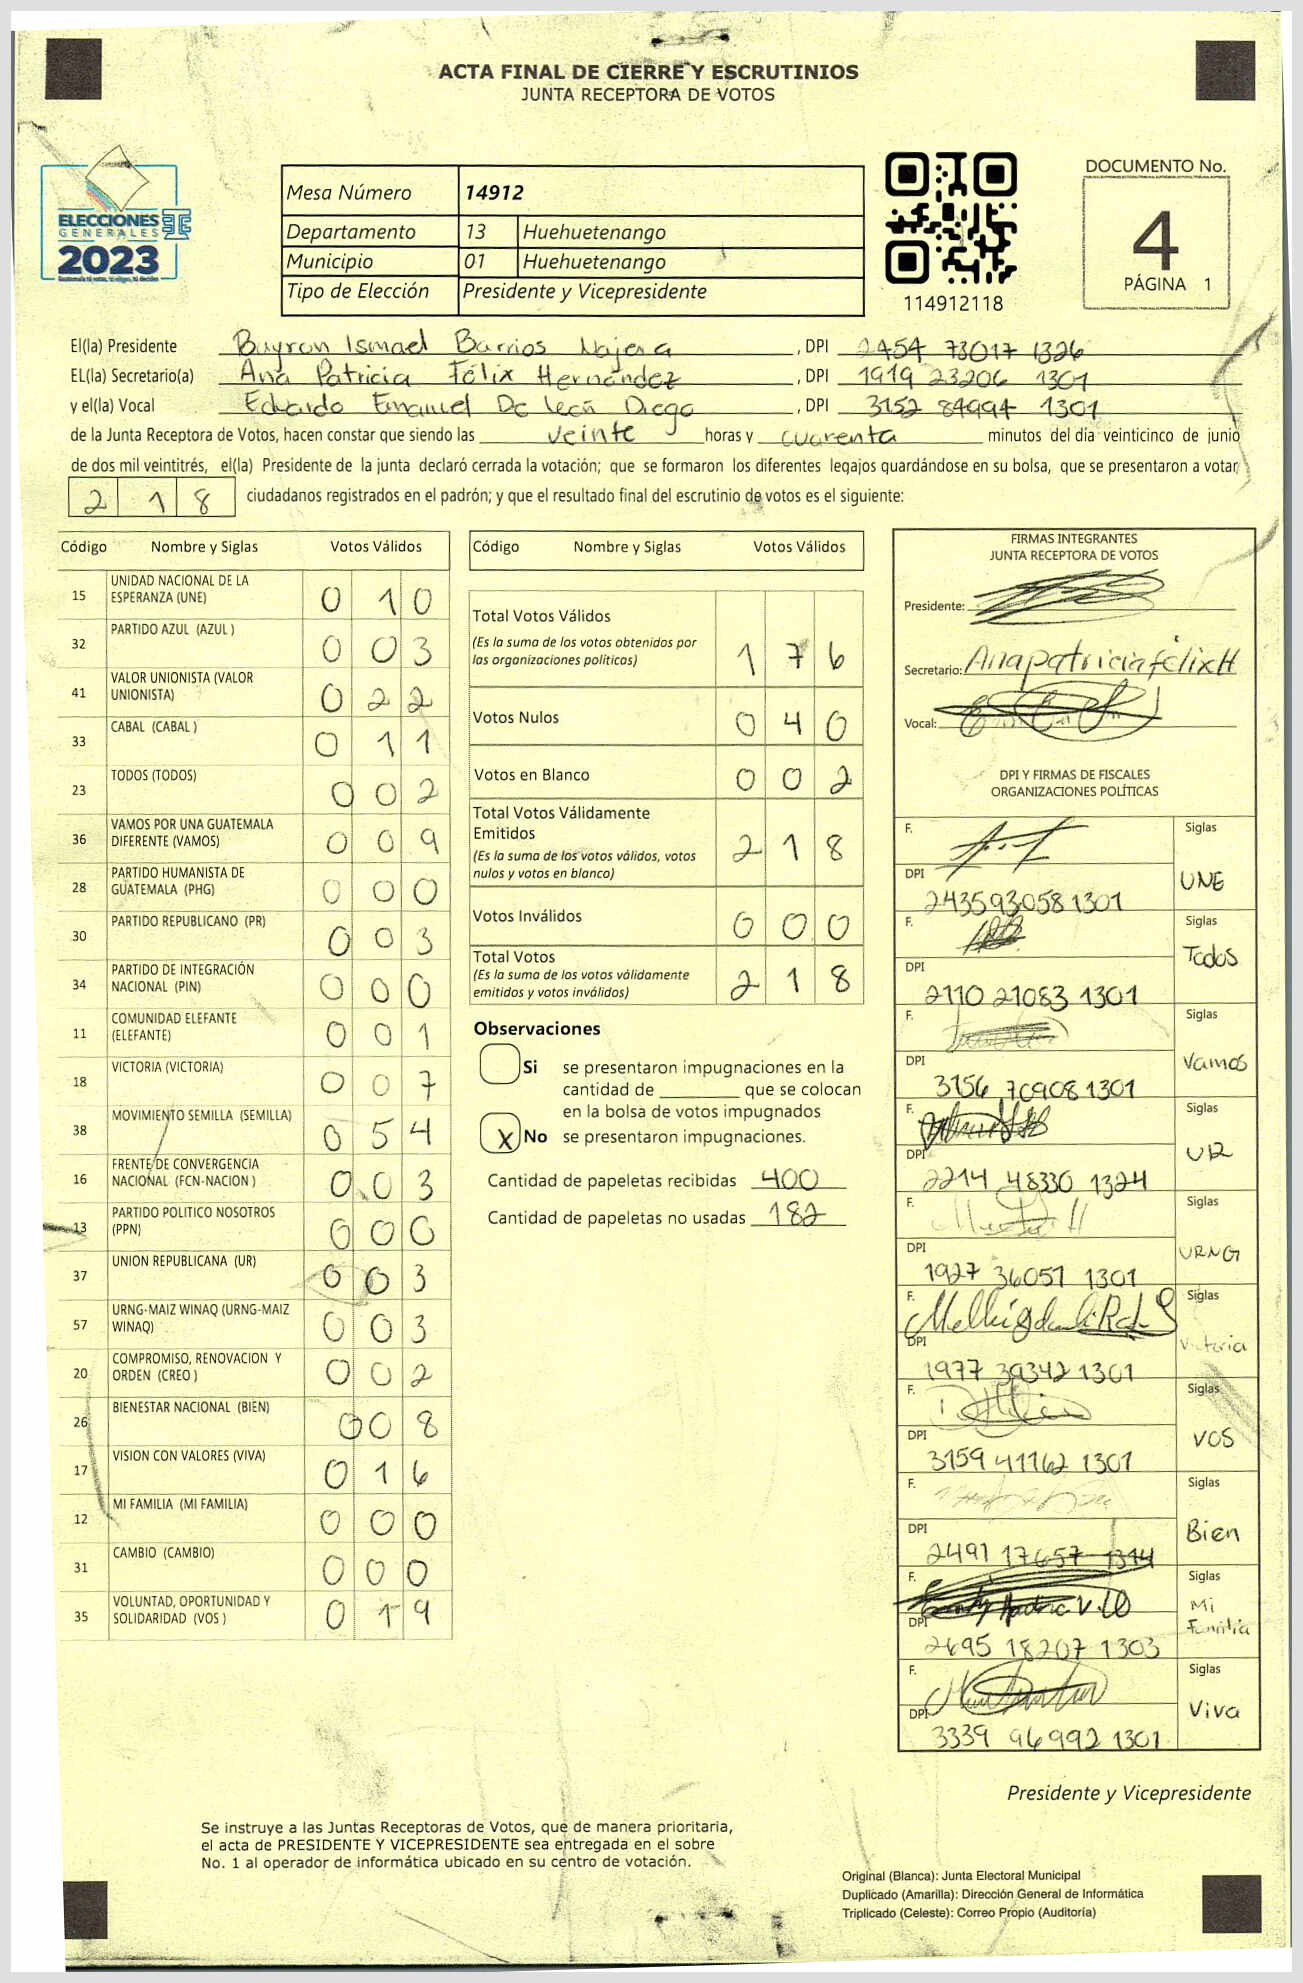 ACTA FINAL DE CIERRE Y ESCRUTINIOS
JUNTA RECEPTORA DE VOTOS
ELECCIONES
GENERALES
2023
Mesa Número 14912
Departamento 13 Huehuetenango
Municipio 01 Huehuetenango
Tipo de Elección Presidente y Vicepresidente
114912118
DOCUMENTO No.
4
PÁGINA 1
El(la) Presidente Buyron Ismael Barrios Najera, DPI 2454 73017 1326
EL(la) Secretario(a) Ana Patricia Félix Hernández, DPI 1919 23206 1301
y el(la) Vocal Eduardo Emanuel De León Diego, DPI 3152 84994 1301
de la Junta Receptora de Votos, hacen constar que siendo las veinte horas y cuarenta minutos del día veinticinco de junio
de dos mil veintitrés, el(la) Presidente de la junta declaró cerrada la votación; que se formaron los diferentes legajos guardándose en su bolsa, que se presentaron a votar
218 ciudadanos registrados en el padrón; y que el resultado final del escrutinio de votos es el siguiente:
Código Nombre y Siglas Votos Válidos
15 UNIDAD NACIONAL DE LA ESPERANZA (UNE) 0 1 0
32 PARTIDO AZUL (AZUL ) 0 0 3
41 VALOR UNIONISTA (VALOR UNIONISTA) 0 2 2
33 CABAL (CABAL ) 0 1 1
23 TODOS (TODOS) 0 0 2
36 VAMOS POR UNA GUATEMALA DIFERENTE (VAMOS) 0 0 9
28 PARTIDO HUMANISTA DE GUATEMALA (PHG) 0 0 0
30 PARTIDO REPUBLICANO (PR) 0 0 3
34 PARTIDO DE INTEGRACIÓN NACIONAL (PIN) 0 0 0
11 COMUNIDAD ELEFANTE (ELEFANTE) 0 0 1
18 VICTORIA (VICTORIA) 0 0 7
38 MOVIMIENTO SEMILLA (SEMILLA) 0 5 4
16 FRENTE DE CONVERGENCIA NACIONAL (FCN-NACION ) 0 0 3
13 PARTIDO POLITICO NOSOTROS (PPN) 0 0 0
37 UNION REPUBLICANA (UR) 0 0 3
57 URNG-MAIZ WINAQ (URNG-MAIZ WINAQ) 0 0 3
20 COMPROMISO, RENOVACION Y ORDEN (CREO ) 0 0 2
26 BIENESTAR NACIONAL (BIEN) 0 0 8
17 VISION CON VALORES (VIVA) 0 1 6
12 MI FAMILIA (MI FAMILIA) 0 0 0
31 CAMBIO (CAMBIO) 0 0 0
35 VOLUNTAD, OPORTUNIDAD Y SOLIDARIDAD (VOS ) 0 1 9
Código Nombre y Siglas Votos Válidos
Total Votos Válidos 1 7 6
(Es la suma de los votos obtenidos por
las organizaciones políticas)
Votos Nulos 0 4 0
Votos en Blanco 0 0 2
Total Votos Válidamente
Emitidos 2 1 8
(Es la suma de los votos válidos, votos
nulos y votos en blanco)
Votos Inválidos 0 0 0
Total Votos 2 1 8
(Es la suma de los votos válidamente
emitidos y votos inválidos)
Observaciones
Si se presentaron impugnaciones en la
cantidad de ________ que se colocan
en la bolsa de votos impugnados
X No se presentaron impugnaciones.
Cantidad de papeletas recibidas 400
Cantidad de papeletas no usadas 182
FIRMAS INTEGRANTES
JUNTA RECEPTORA DE VOTOS
Presidente:
Secretario: Ana patricia félix H
Vocal:
DPI Y FIRMAS DE FISCALES
ORGANIZACIONES POLÍTICAS
F. Siglas
DPI 2435 93058 1301 UNE
F. Siglas
DPI 2110 21083 1301 Todos
F. Siglas
DPI 3156 70908 1301 Vamos
F. Siglas
DPI 2214 48330 1324 UR
F. Siglas
DPI 1927 36051 1301 URNG
F. Siglas
DPI 1977 39342 1301 Victoria
F. Siglas
DPI 3159 41162 1301 VOS
F. Siglas
DPI 2491 17657 1314 Bien
F. Siglas
DPI 2695 18207 1303 Mi Familia
F. Siglas
DPI 3339 96992 1301 Viva
Presidente y Vicepresidente
Se instruye a las Juntas Receptoras de Votos, que de manera prioritaria,
el acta de PRESIDENTE Y VICEPRESIDENTE sea entregada en el sobre
No. 1 al operador de informática ubicado en su centro de votación.
Original (Blanca): Junta Electoral Municipal
Duplicado (Amarilla): Dirección General de Informática
Triplicado (Celeste): Correo Propio (Auditoría)